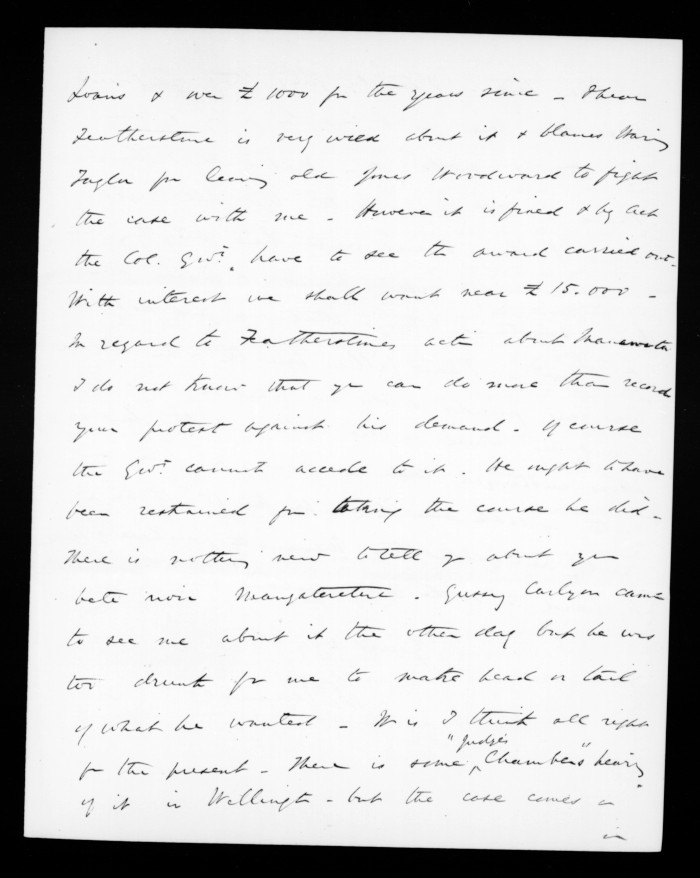 & over £1000 for the years since - I hear
Featherstone is very wild about it & blames Waring
Taylor for leaving old Jones Woodward to fight
the case with me - However it is fixed & by act
the Col. Govt. have to see the award carried out -
With interest we shall want near £15.000 -
In regard to Featherstone's acts about Manawatu
I do not know that you can do more than record
your protest against his demand - Of course
the Govt. cannot accede to it. He ought to have
been restrained from taking the course he did -
There is nothing new to tell you about your
bete noir Mangatereteri. Gussy Carlyon came
to see me about it the other day but he was
too drunk for me to make head or tail
of what he wanted - It is I think all right
for the present - There is some "Judges Chambers" hearing
of it in Wellington - but the case comes on
in